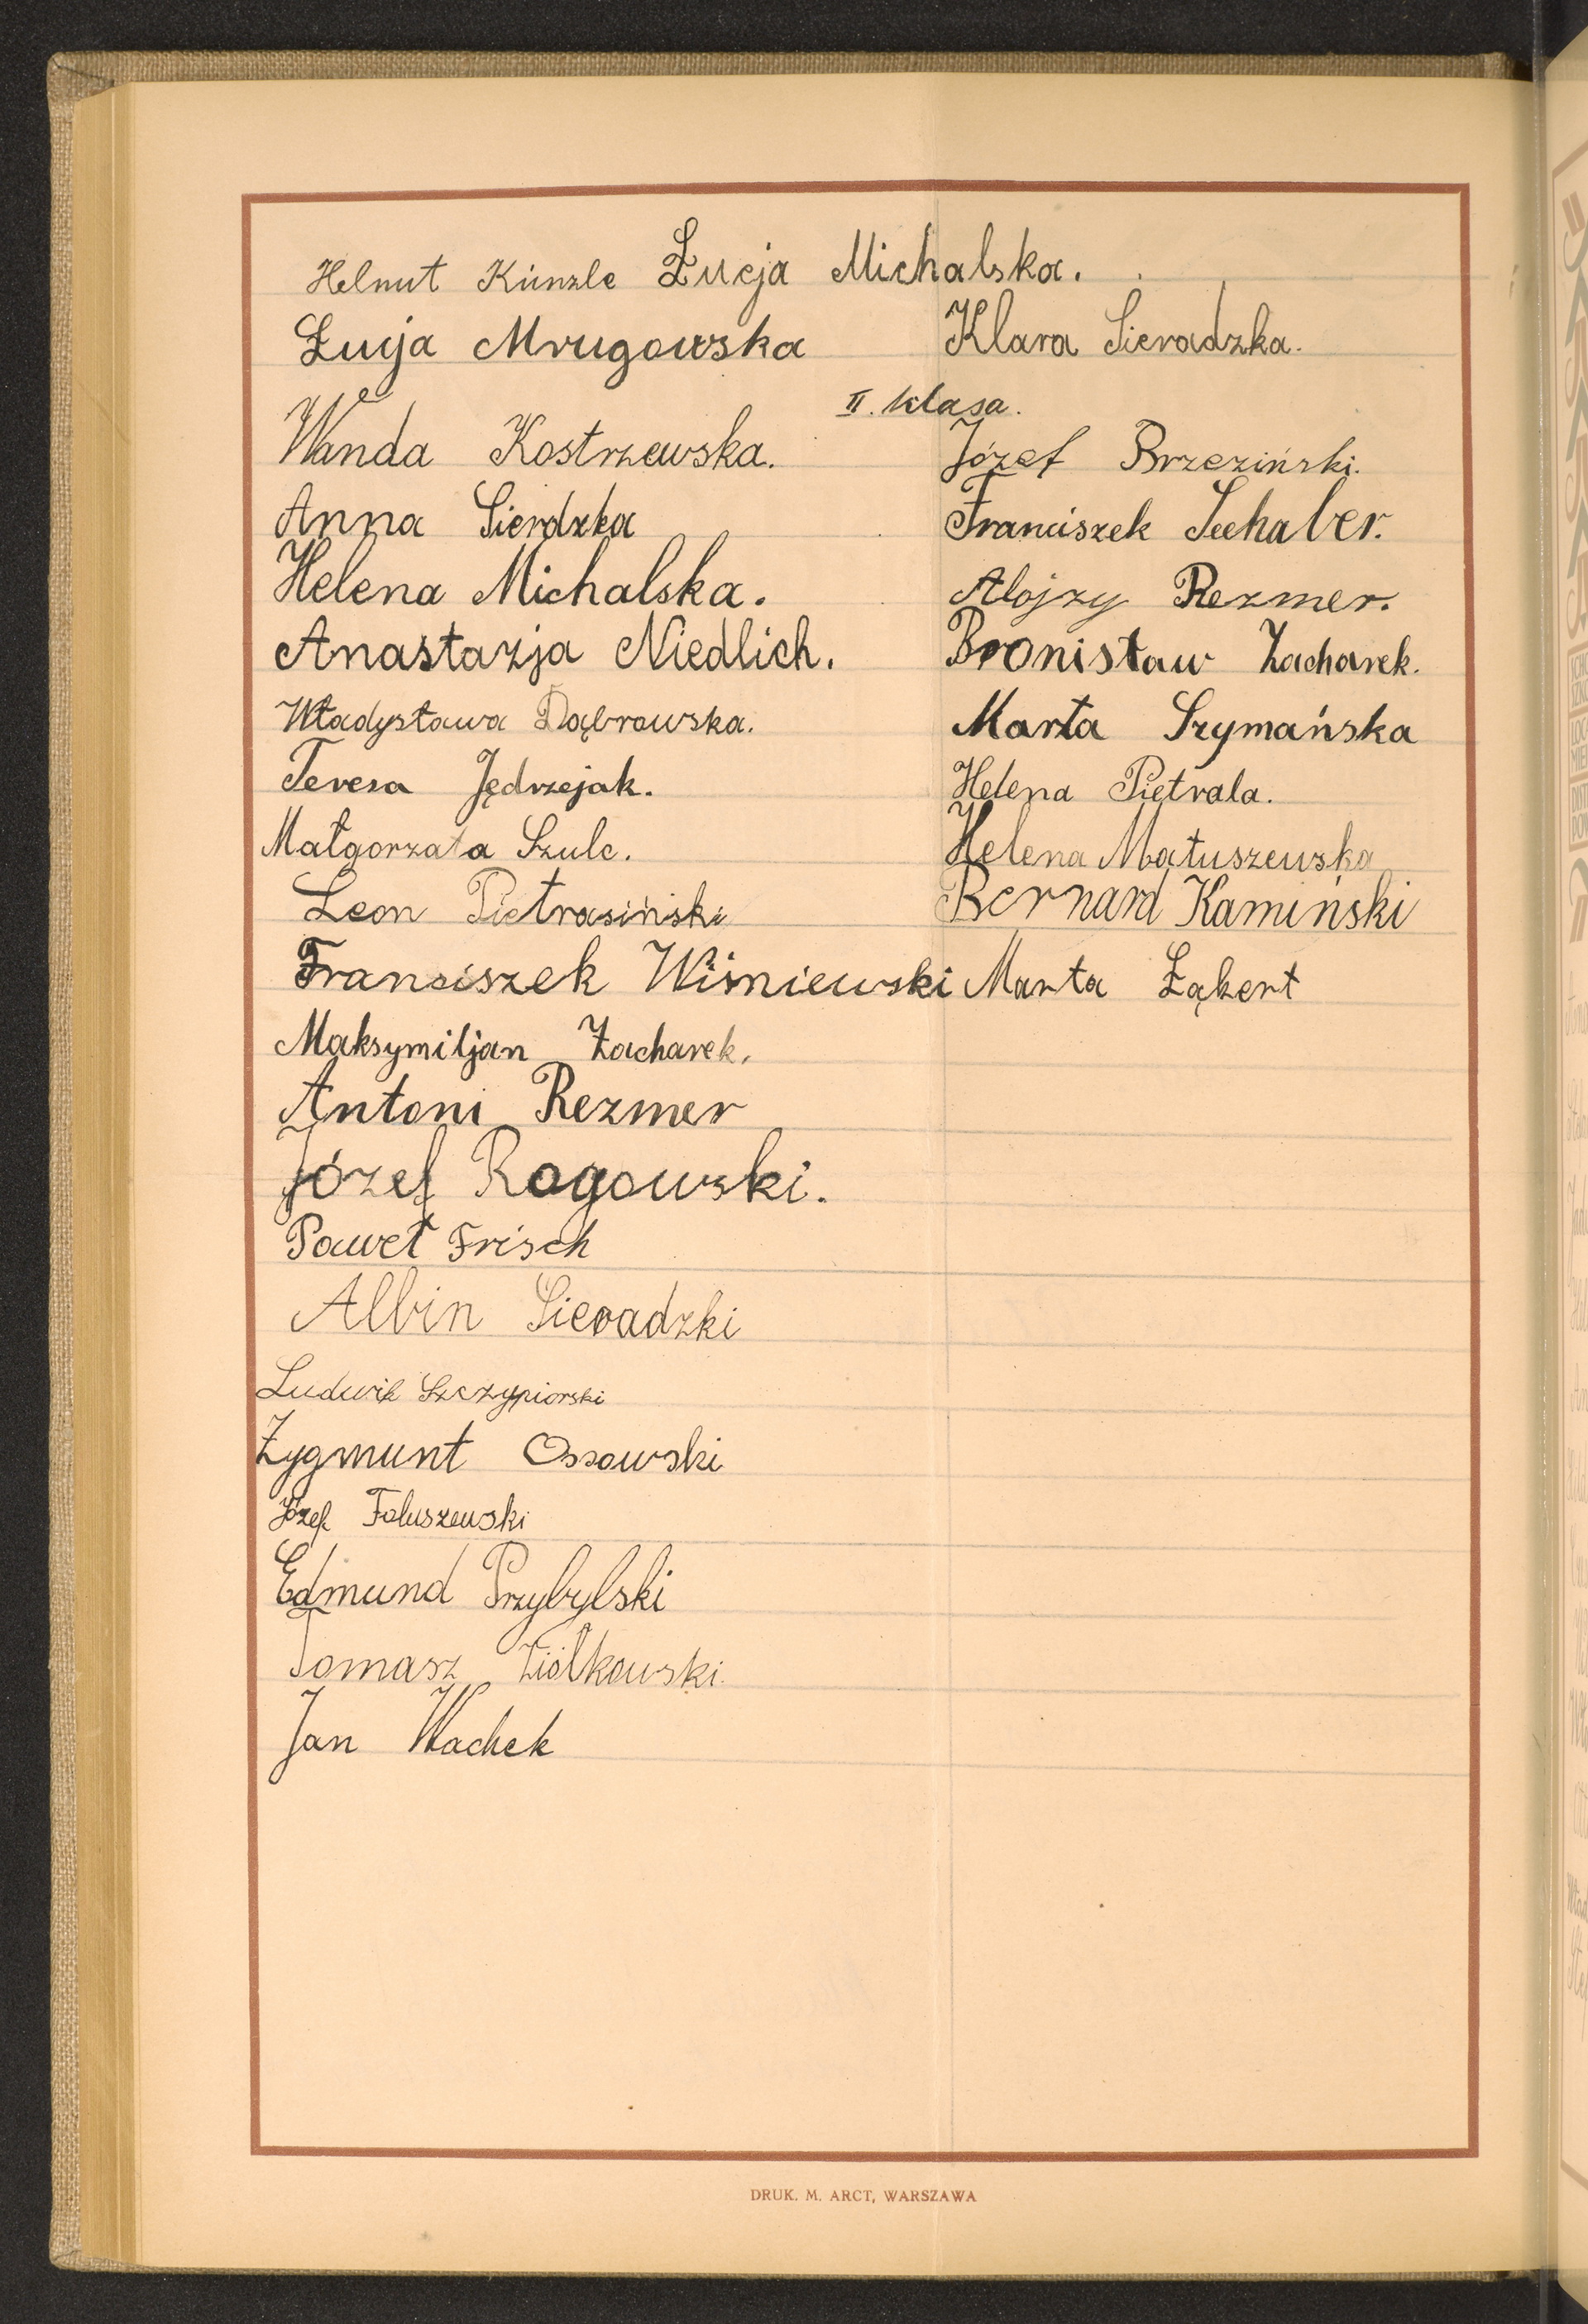 Helmut Künzle Łucja Michalska.
Łucja Mrugowska Klara Sieradzka.
II. klasa.
Wanda Kostrzewska. Józef Brzeziński.
Anna Sierdzka Franciszek Seehaber.
Helena Michalska. Alojzy Rezmer.
Anastazja Niedlich. Bronisław Zacharek.
Władysława Dąbrowska. Marta Szymańska
Teresa Jędrzejak. Helena Pietrala.
Małgorzata Szulc. Helena Matuszewska
Leon Pietrasiński Bernard Kamiński
Franciszek Wiśniewski Marta
Maksymiljan Zacharek.
Antoni Rezmer
Józef Rogowski.
Paweł Frisch
Albin Sieradzki
Ludwik Szczypiorski
Zygmunt Ossowski
Józef
Edmund Przybylski
Tomasz Ziółkowski.
Jan Wachek
DRUK. M. ARCT, WARSZAWA